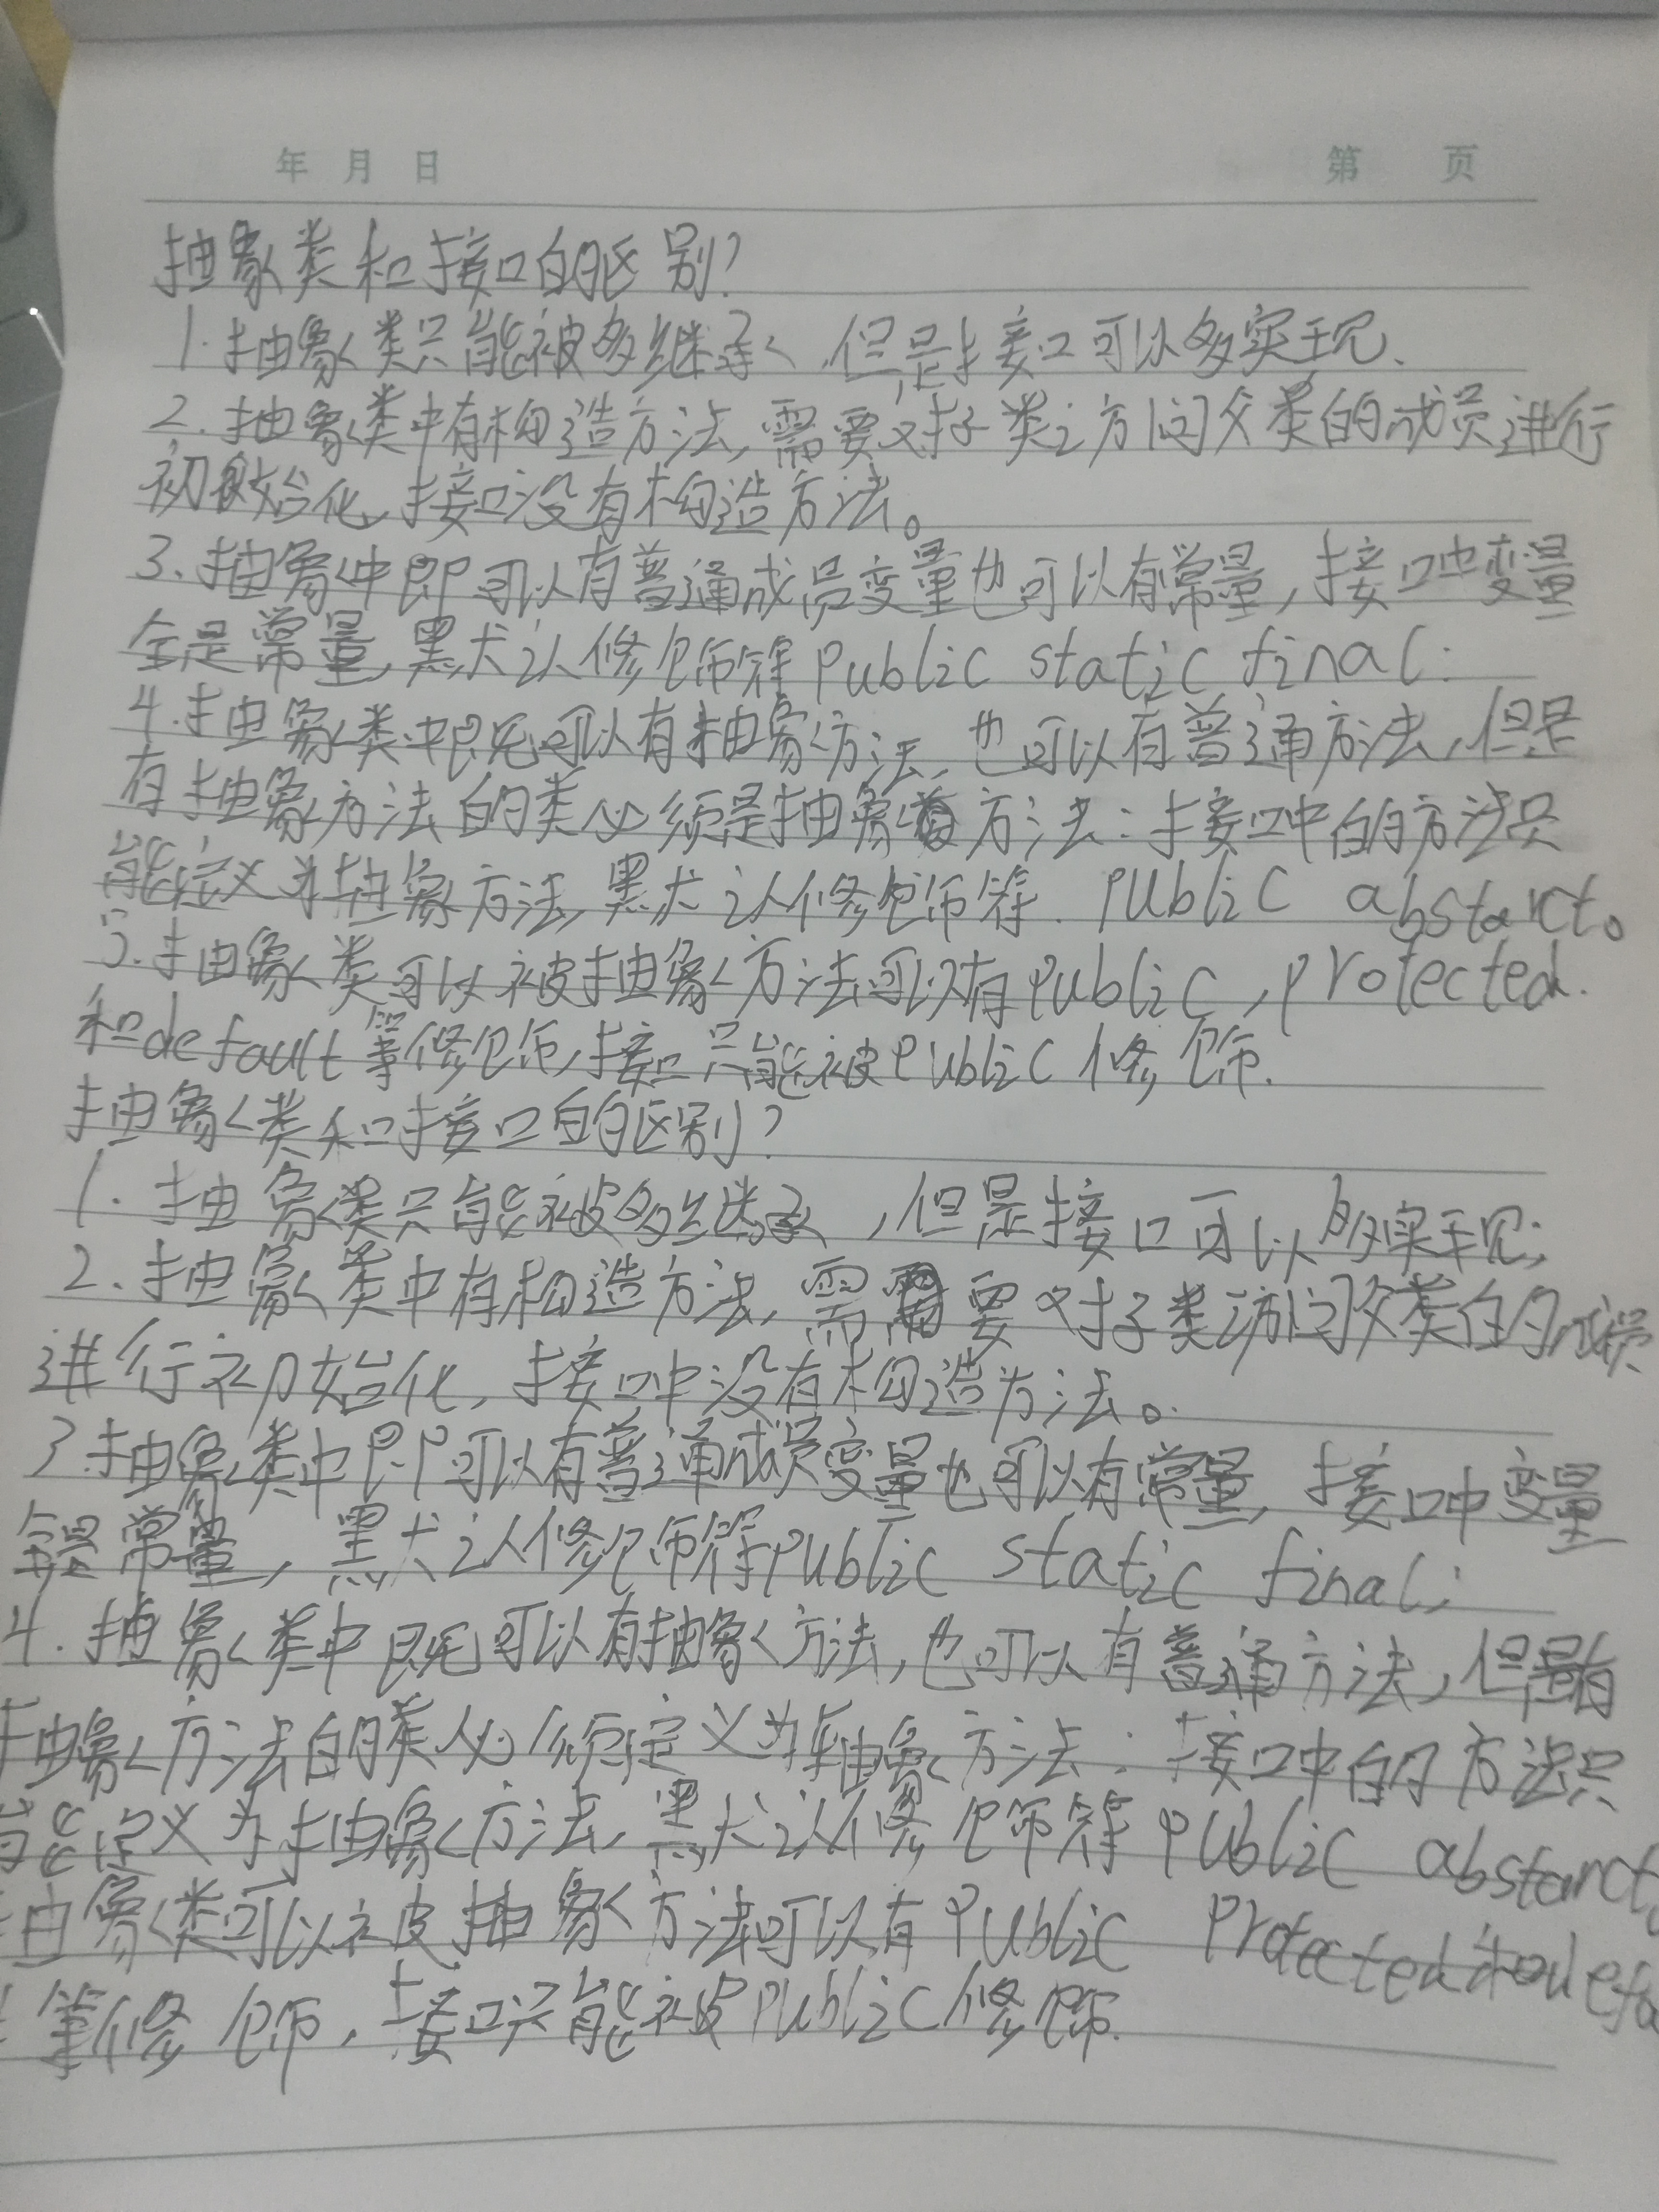 年 月 日 第 页
抽象类和接口的区别？
1.抽象类只能被多继承,但是接口可以多实现、
2.抽象类中有构造方法,需要对子类访问父类的成员进行
初始化,接口没有构造方法。
3.抽象中即可以有普通成员变量也可以有常量,接口中变量
全是常量,默认修饰符public static final:
4.抽象类中既可以有抽象方法,也可以有普通方法,但是
有抽象方法的类必须是抽象方法:接口中的方法只
能定义为抽象方法,默认修饰符.public abstarct。
5.抽象类可以被抽象方法可以有public,protected.
和default等修饰,接口只能被public修饰.
抽象类和接口的区别？
1.抽象类只能被多继承,但是接口可以多实现;
2.抽象类中有构造方法,需要对子类访问父类的成员
进行初始化,接口中没有构造方法。
3.抽象类中即可以有普通成员变量也可以有常量,接口中变量
全是常量,默认修饰符public static final;
4.抽象类中既可以有抽象方法,也可以有普通方法,但是有
抽象方法的类必须定义为抽象方法:接口中的方法只
能定义为抽象方法,默认修饰符public abstarct。
抽象类可以被抽象方法可以有public protected和defa
等修饰,接口只能被public修饰.